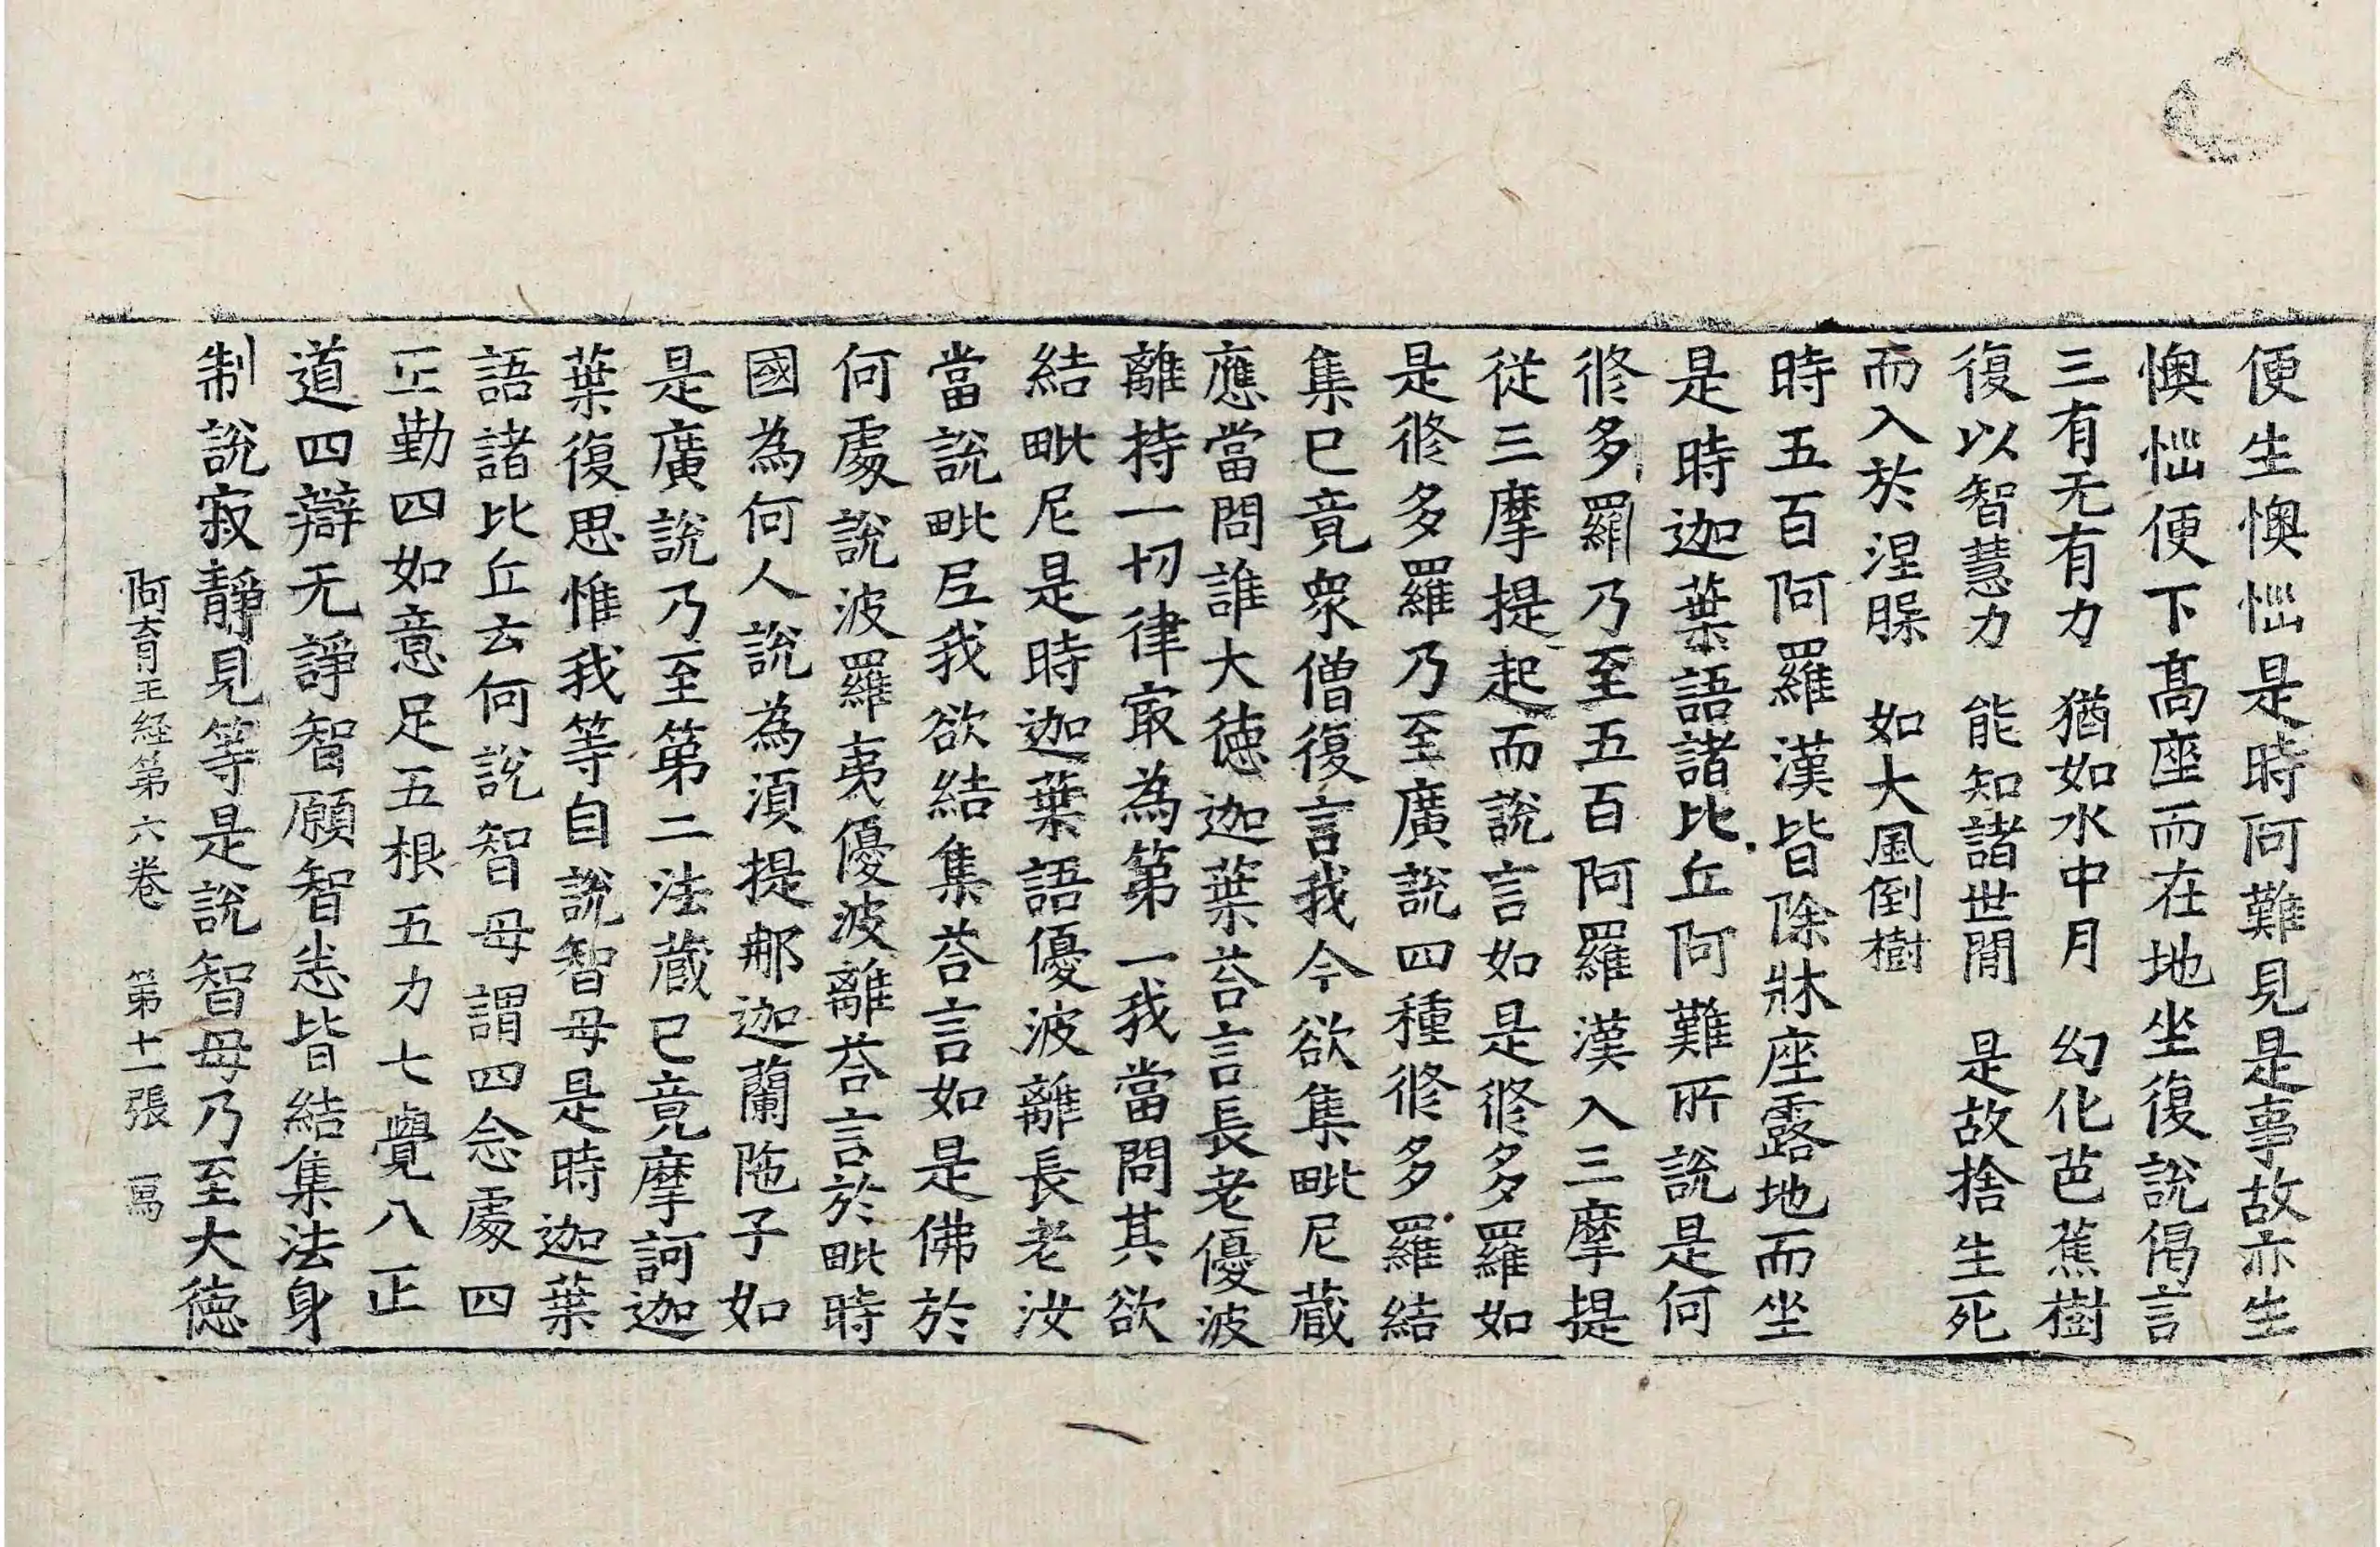 便生懊惱是時阿難見是事故亦生
懊惱便下髙座而在地坐復說偈言
三有无有力　猶如水中月　幻化芭蕉樹
復以智慧力　能知諸世閒　是故捨生死
而入於涅槃　如大風倒樹
時五百阿羅漢皆除牀座露地而坐
是時迦葉語諸比丘阿難所說是何
修多羅乃至五百阿羅漢入三摩提
從三摩提起而說言如是修多羅如
是修多羅乃至廣說四種修多羅結
集已竟衆僧復言我今欲集毗尼藏
應當問誰大德迦葉荅言長老優波
離持一切律㝡為第一我當問其欲
結毗尼是時迦葉語優波離長老汝
當說毗尼我欲結集荅言如是佛於
何處說波羅夷優波離荅言於毗時
國為何人說為湏提那迦蘭陁子如
是廣說乃至第二法藏已竟摩訶迦
葉復思惟我等自說智母是時迦葉
語諸比丘云何說智母謂四念處四
正勤四如意足五根五力七覺八正
道四辯无諍智願智悉皆結集法身
制說寂靜見等是說智母乃至大德
阿育王経第六卷　第十一張　寫